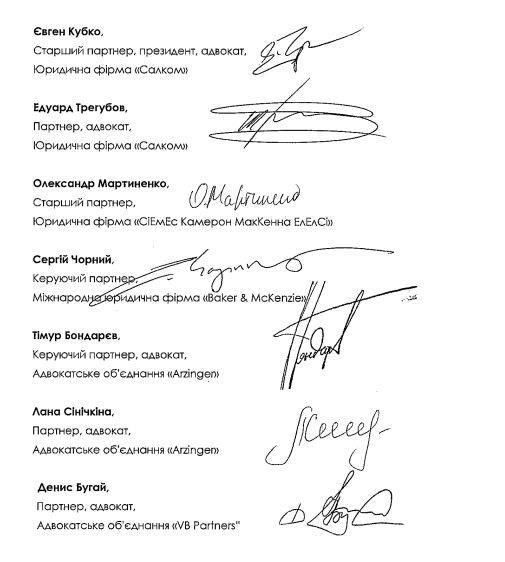 Євген Кубко,
Старший партнер, президент, адвокат,
Юридична фірма «Салком»
Едуард Трегубов,
Партнер, адвокат,
Юридична фірма «Салком»
Олександр Мартиненко,
О.Мартиненко
Старший партнер,
Юридична фірма «СіЕмЕс Камерон МакКенна ЕлЕлСі»
Сергій Чорний,
Керуючий партнер,
Міжнародна юридична фірма «Baker & McKenzie»
Тімур Бондарєв,
Керуючий партнер, адвокат,
Адвокатське об'єднання «Arzinger»
Лана Сінічкіна,
Партнер, адвокат,
Адвокатське об'єднання «Arzinger»
Денис Бугай,
Партнер, адвокат,
Адвокатське об'єднання «VB Partners"